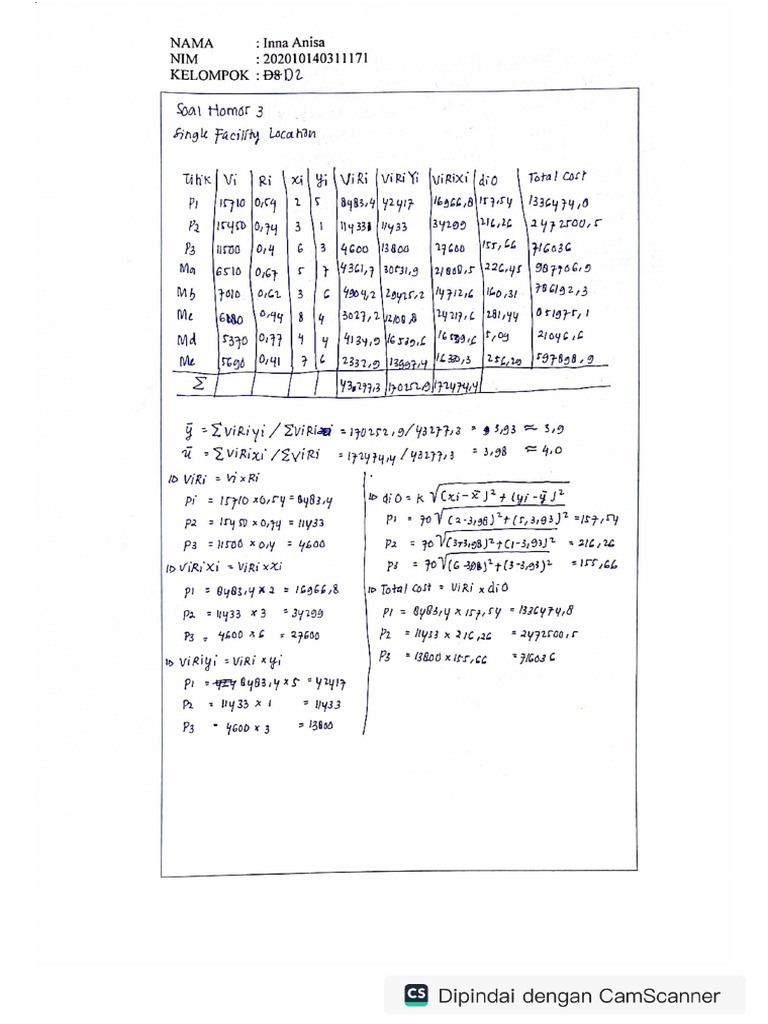 NAMA : Inna Anisa
NIM : 202010140311171
KELOMPOK : D8 D2
Soal Nomor 3
Single Facility Location
Titik Vi Ri xi yi ViRi ViRiYi ViRiXi di0 Total Cost
P1 15710 0,54 2 5 8483,4 42417 16966,8 157,54 1336474,8
P2 15450 0,74 3 1 11433 11433 34299 216,26 2472500,5
P3 11500 0,4 6 3 4600 13800 27600 155,66 716036
Ma 6510 0,67 5 7 4361,7 30531,9 21808,5 226,45 987706,9
Mb 7910 0,62 3 6 4904,2 29425,2 14712,6 160,31 786192,3
Mc 6880 0,44 8 4 3027,2 12108,8 24217,6 281,44 851975,1
Md 5370 0,77 4 4 4134,9 16539,6 16539,6 5,09 21046,6
Me 5690 0,41 7 6 2332,9 13997,4 16330,3 256,29 597898,9
Σ 43277,3 170252,9 172474,4
ȳ = ΣViRiyi / ΣViRi = 170252,9 / 43277,3 = 3,93 ≈ 3,9
x̄ = ΣViRixi / ΣViRi = 172474,4 / 43277,3 = 3,98 ≈ 4,0
ViRi = Vi x Ri
Pi = 15710 x 0,54 = 8483,4
P2 = 15450 x 0,74 = 11433
P3 = 11500 x 0,4 = 4600
ViRiXi = ViRi x xi
P1 = 8483,4 x 2 = 16966,8
P2 = 11433 x 3 = 34299
P3 = 4600 x 6 = 27600
ViRiyi = ViRi x yi
P1 = 8483,4 x 5 = 42417
P2 = 11433 x 1 = 11433
P3 = 4600 x 3 = 13800
di0 = K √(xi-x̄)² + (yi-ȳ)²
P1 = 70 √(2-3,98)² + (5,3,93)² = 157,54
P2 = 70 √(3+3,98)² + (1-3,93)² = 216,26
P3 = 70 √(6-3,98)² + (3-3,93)² = 155,66
Total Cost = ViRi x di0
P1 = 8483,4 x 157,54 = 1336474,8
P2 = 11433 x 216,26 = 2472500,5
P3 = 13800 x 155,66 = 716036
CS Dipindai dengan CamScanner